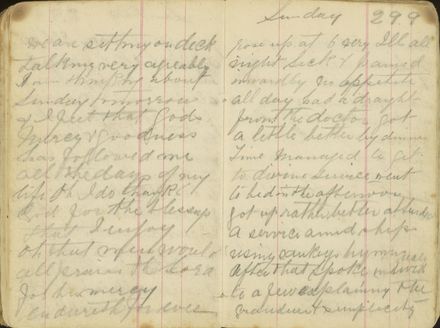 we are sitting on deck
talking very agreeably
I am thinking about
Sunday tomorrow
& I feel that Gods
mercy & goodness
has followed me
all the days of my
life Oh I do thank
God for the blessings
that I enjoy
oh that men would
all praise the Lord
for his mercy
endureth for ever
Sunday 29.9
rose up at 6 very Ill all
night Sick & pained
inwardly no appetite
all day had a draught
from the doctor got
a little better by dinner
Time managed to get
to divine Service went
to bed in the afternoon
got up rather better attended
a service amidships
using Sankeys hymns
after that Spoke
to a few explaining the
grandeur & simplicity